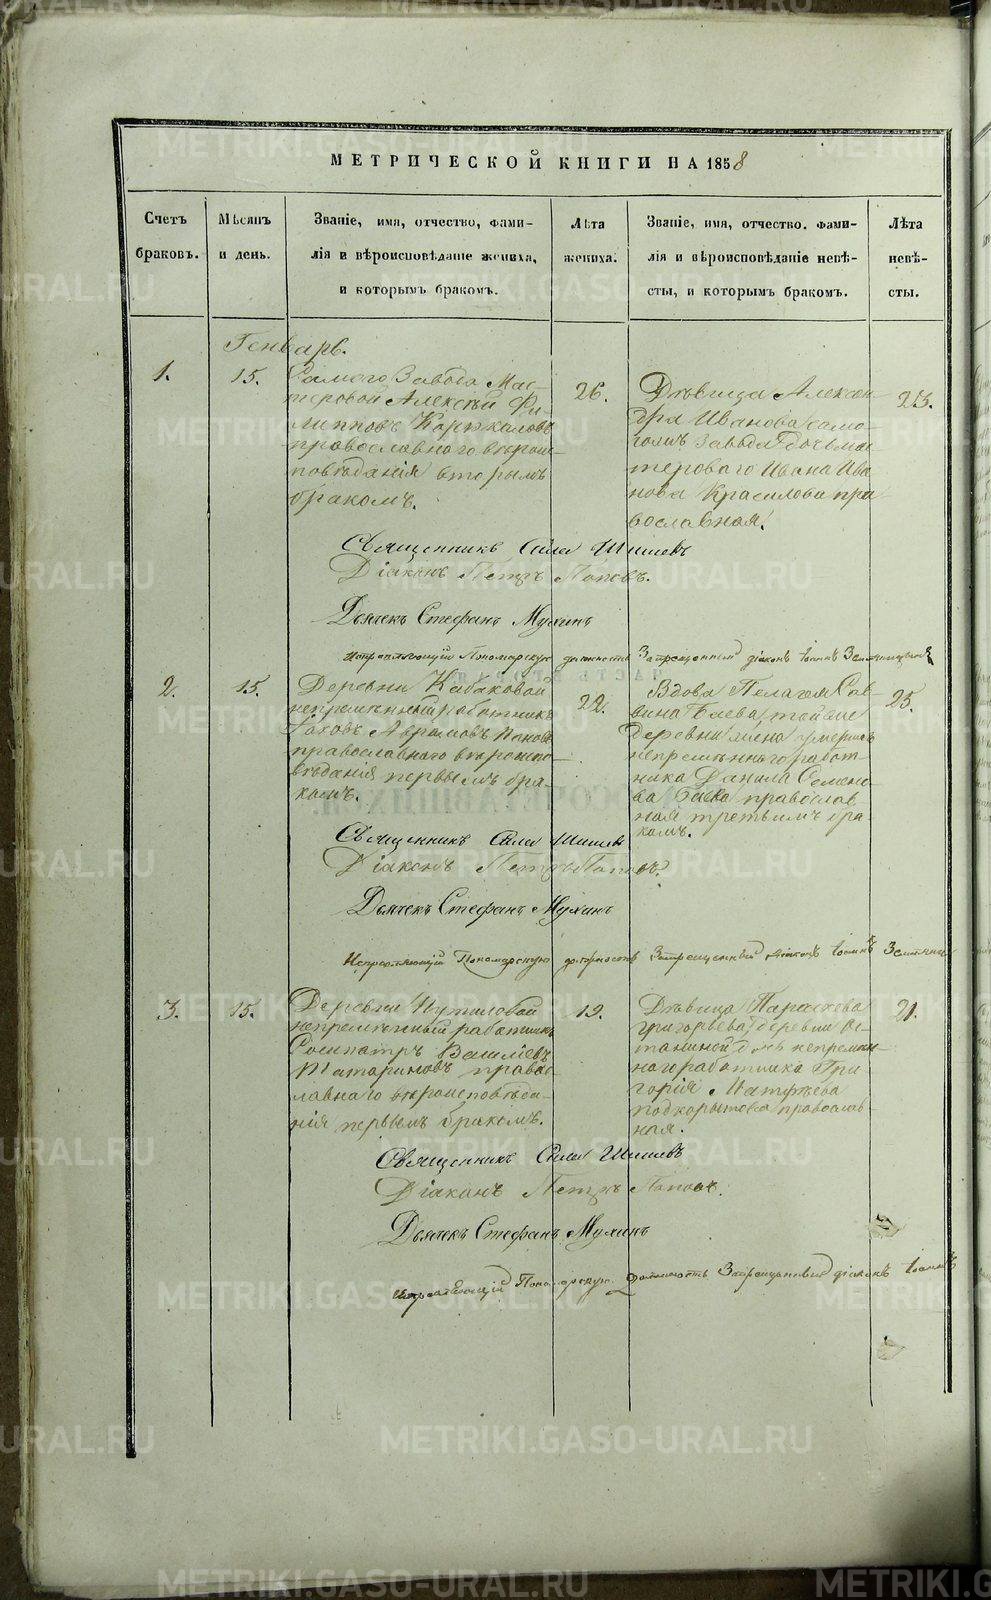 МЕТРИЧЕСКОЙ КНИГИ НА 1858
Счетъ браковъ.
Мѣсяцъ и день.
Званіе, имя, отчество, фами-
лія и вѣроисповѣданіе жениха,
и которымъ бракомъ.
Лѣта
жениха.
Званіе, имя, отчество, фами-
лія и вѣроисповѣданіе невѣ-
сты, и которымъ бракомъ.
Лѣта
невѣ-
сты.
Генварь.
1.
15.
Самого Завода Мас-
теровой Алексѣй Фи-
липповъ
православнаго вѣроис-
повѣданія вторымъ
бракомъ.
26.
Дѣвица Алексан-
дра Иванова само-
гожъ завода дочь мас-
тероваго Ивана Ива
нова Красилова пра
вославная.
23.
Священникъ Сила Шишевъ
Діаконъ Петръ Поповъ.
Дьячекъ Стефанъ Мухинъ
Исправляющій Пономарскую должность Запрещенный діаконъ Іоаннъ
2.
15.
Деревни Кабаковой
непремѣнный работникъ
Аврамовъ Поповъ
православнаго вѣроиспо-
вѣданія первымъ бра-
комъ.
22.
Вдова Пелагея Сав-
вина Баева, тойже
деревни жена умершаго
непремѣннаго работ-
ника Данила Семено-
ва Баева православ
ная третьимъ бра-
комъ.
25.
Священникъ Сила Шишевъ
Діаконъ Петръ Поповъ.
Дьячекъ Стефанъ Мухинъ
Исправляющій Пономарскую должность Запрещенный діаконъ Іоаннъ
3.
15.
Деревни Путиловой
непремѣнный работникъ
Сосипатръ Васильевъ
Татариновъ право
славнаго вѣроисповѣда-
нія первымъ бракомъ.
19.
Дѣвица Параскева
Григорьева, деревни Ос-
таниной дочь непремѣн
наго работника Гри
горія Матфѣева
Подкорытова православ-
ная.
21.
Священникъ Сила Шишевъ
Діаконъ Петръ Поповъ.
Дьячекъ Стефанъ Мухинъ
Исправляющій Пономарскую Должность Запрещенный діаконъ Іоаннъ
METRIKI.GASO-URAL.RU